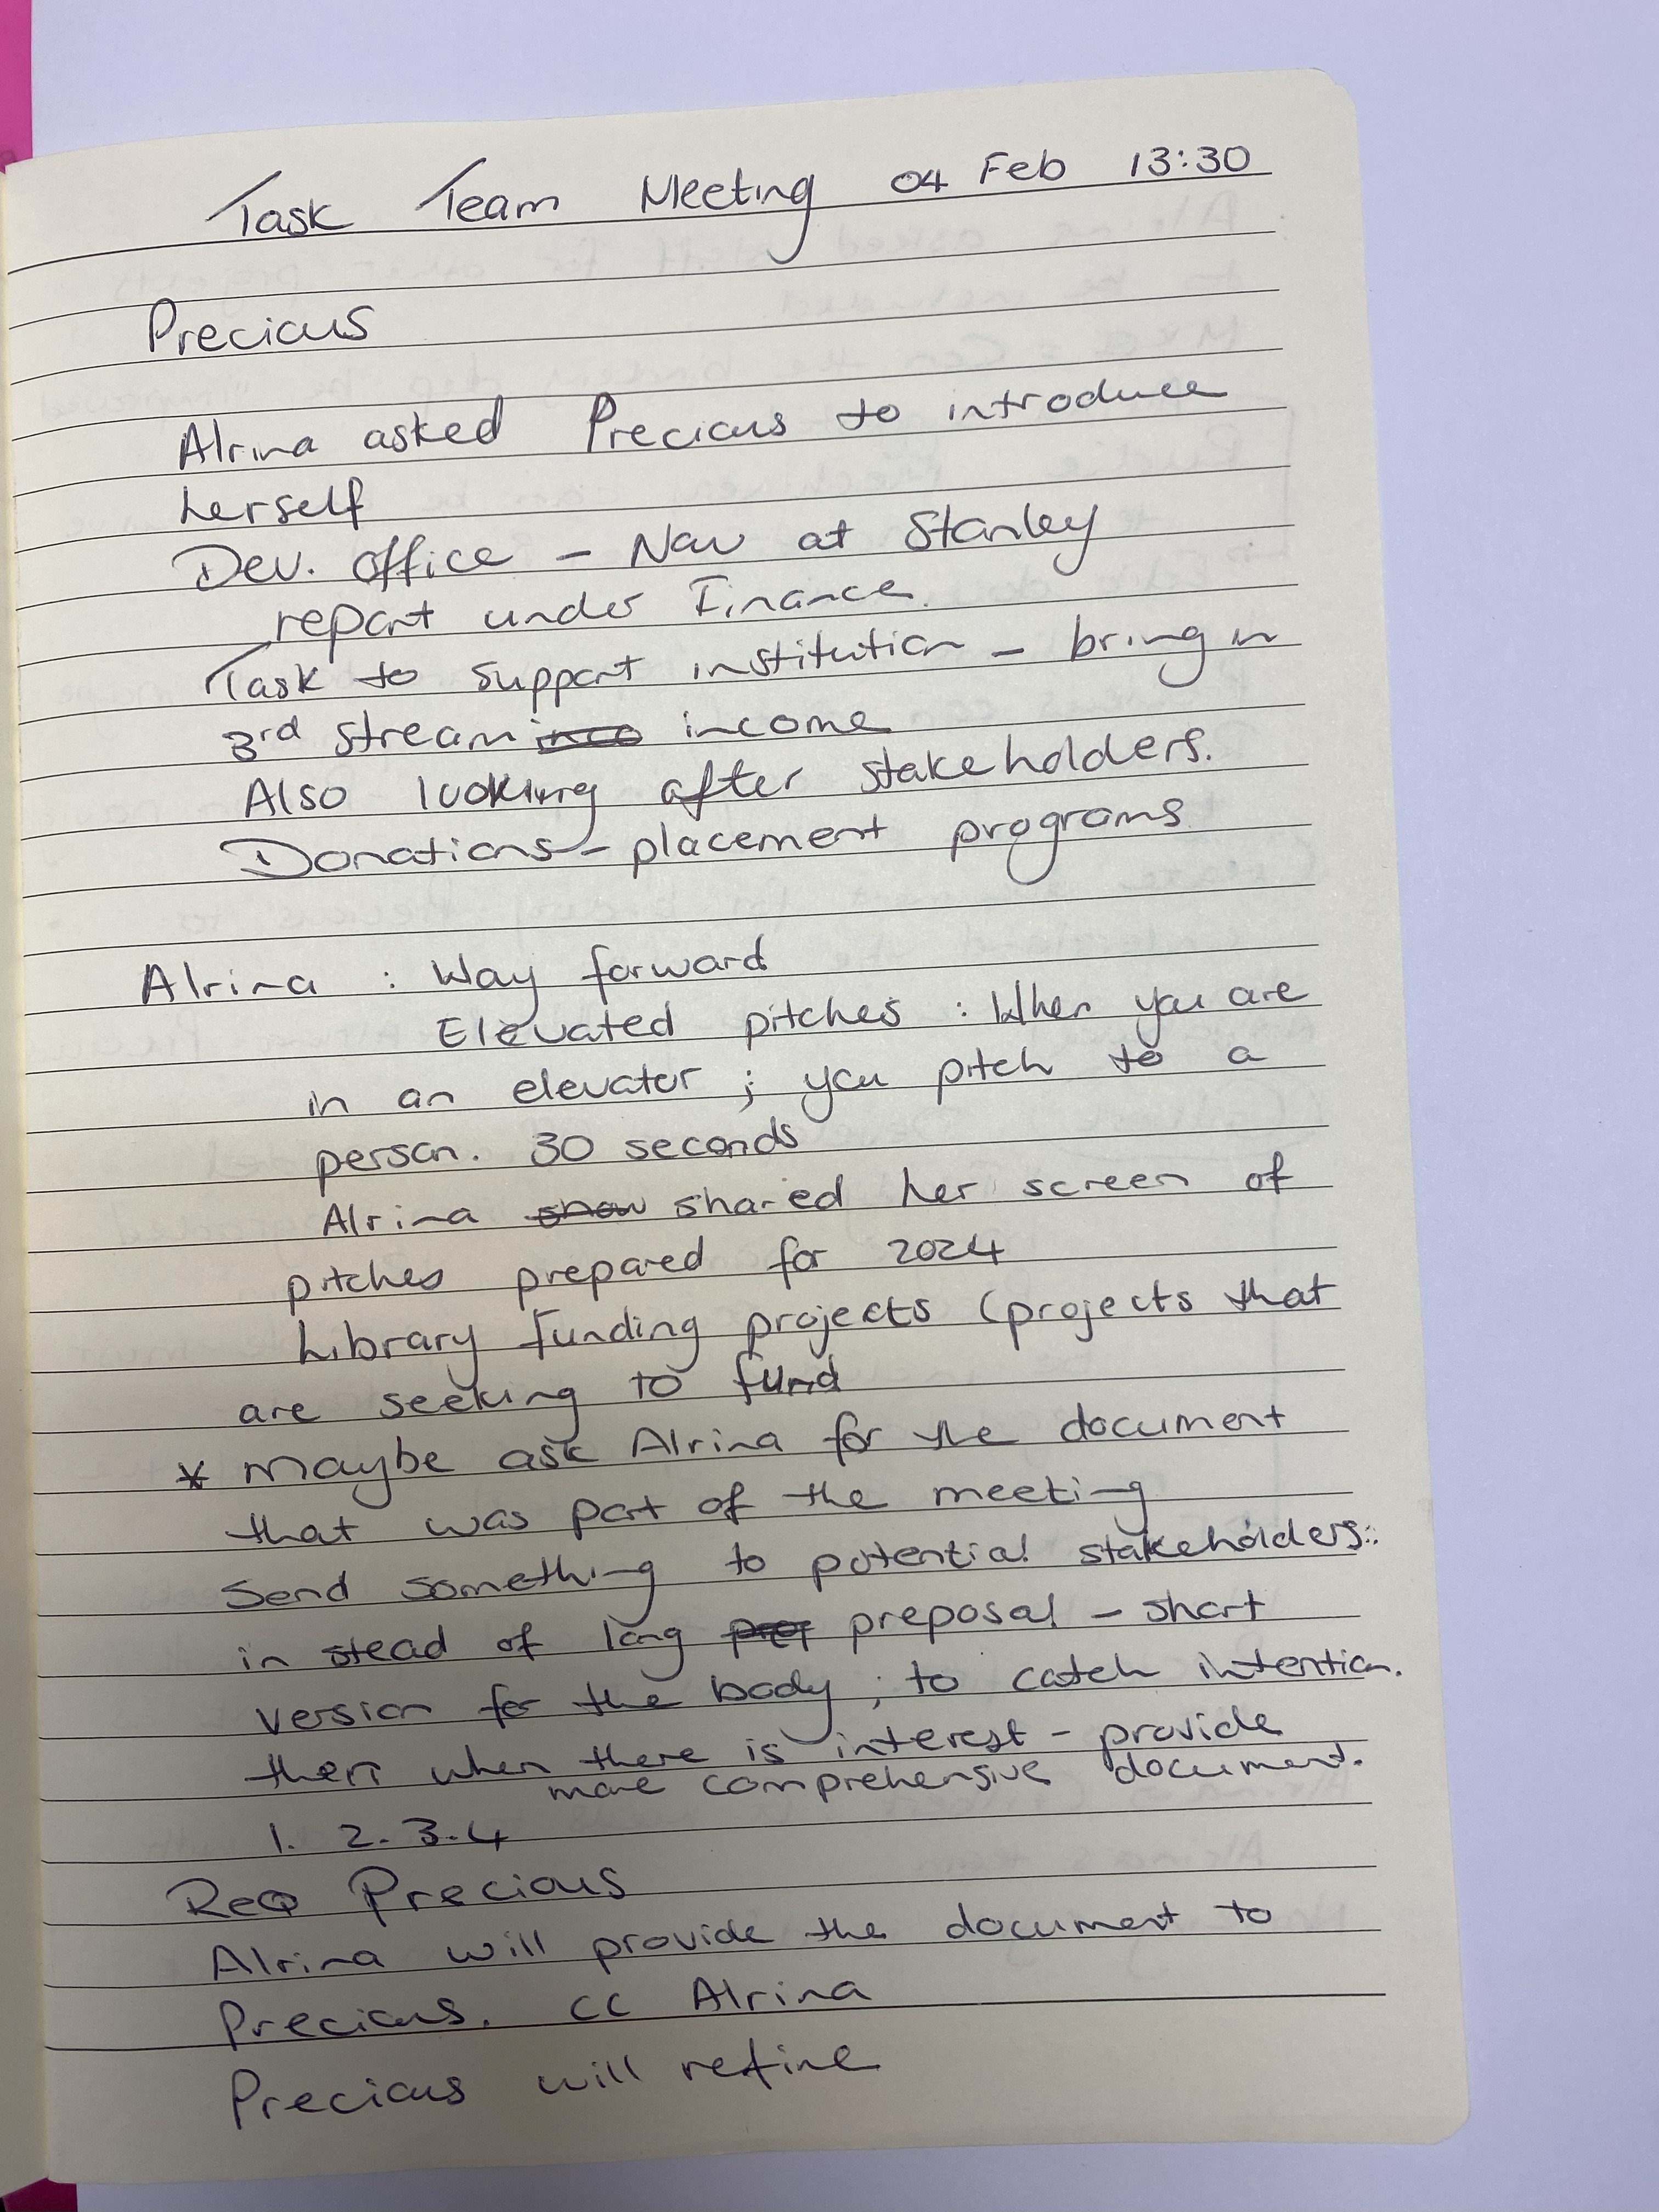 Task Team Meeting 04 Feb 13:30
Precious
Alrina asked Precious to introduce
herself
Dev. office - Now at Stanley
report under Finance.
Task to support institution - bring in
3rd stream income
Also looking after stakeholders.
Donations - placement programs
Alrina : Way forward
Elevated pitches : When you are
in an elevator ; you pitch to a
person. 30 seconds
Alrina show shared her screen of
pitches prepared for 2024
Library funding projects (projects that
are seeking to fund
* Maybe ask Alrina for the document
that was part of the meeting
Send something to potential stakeholders:
in stead of long preposal - short
version for the body ; to catch intention.
then when there is interest - provide
more comprehensive document.
1. 2. 3. 4
Req Precious
Alrina will provide the document to
Precious. CC Alrina
Precious will refine